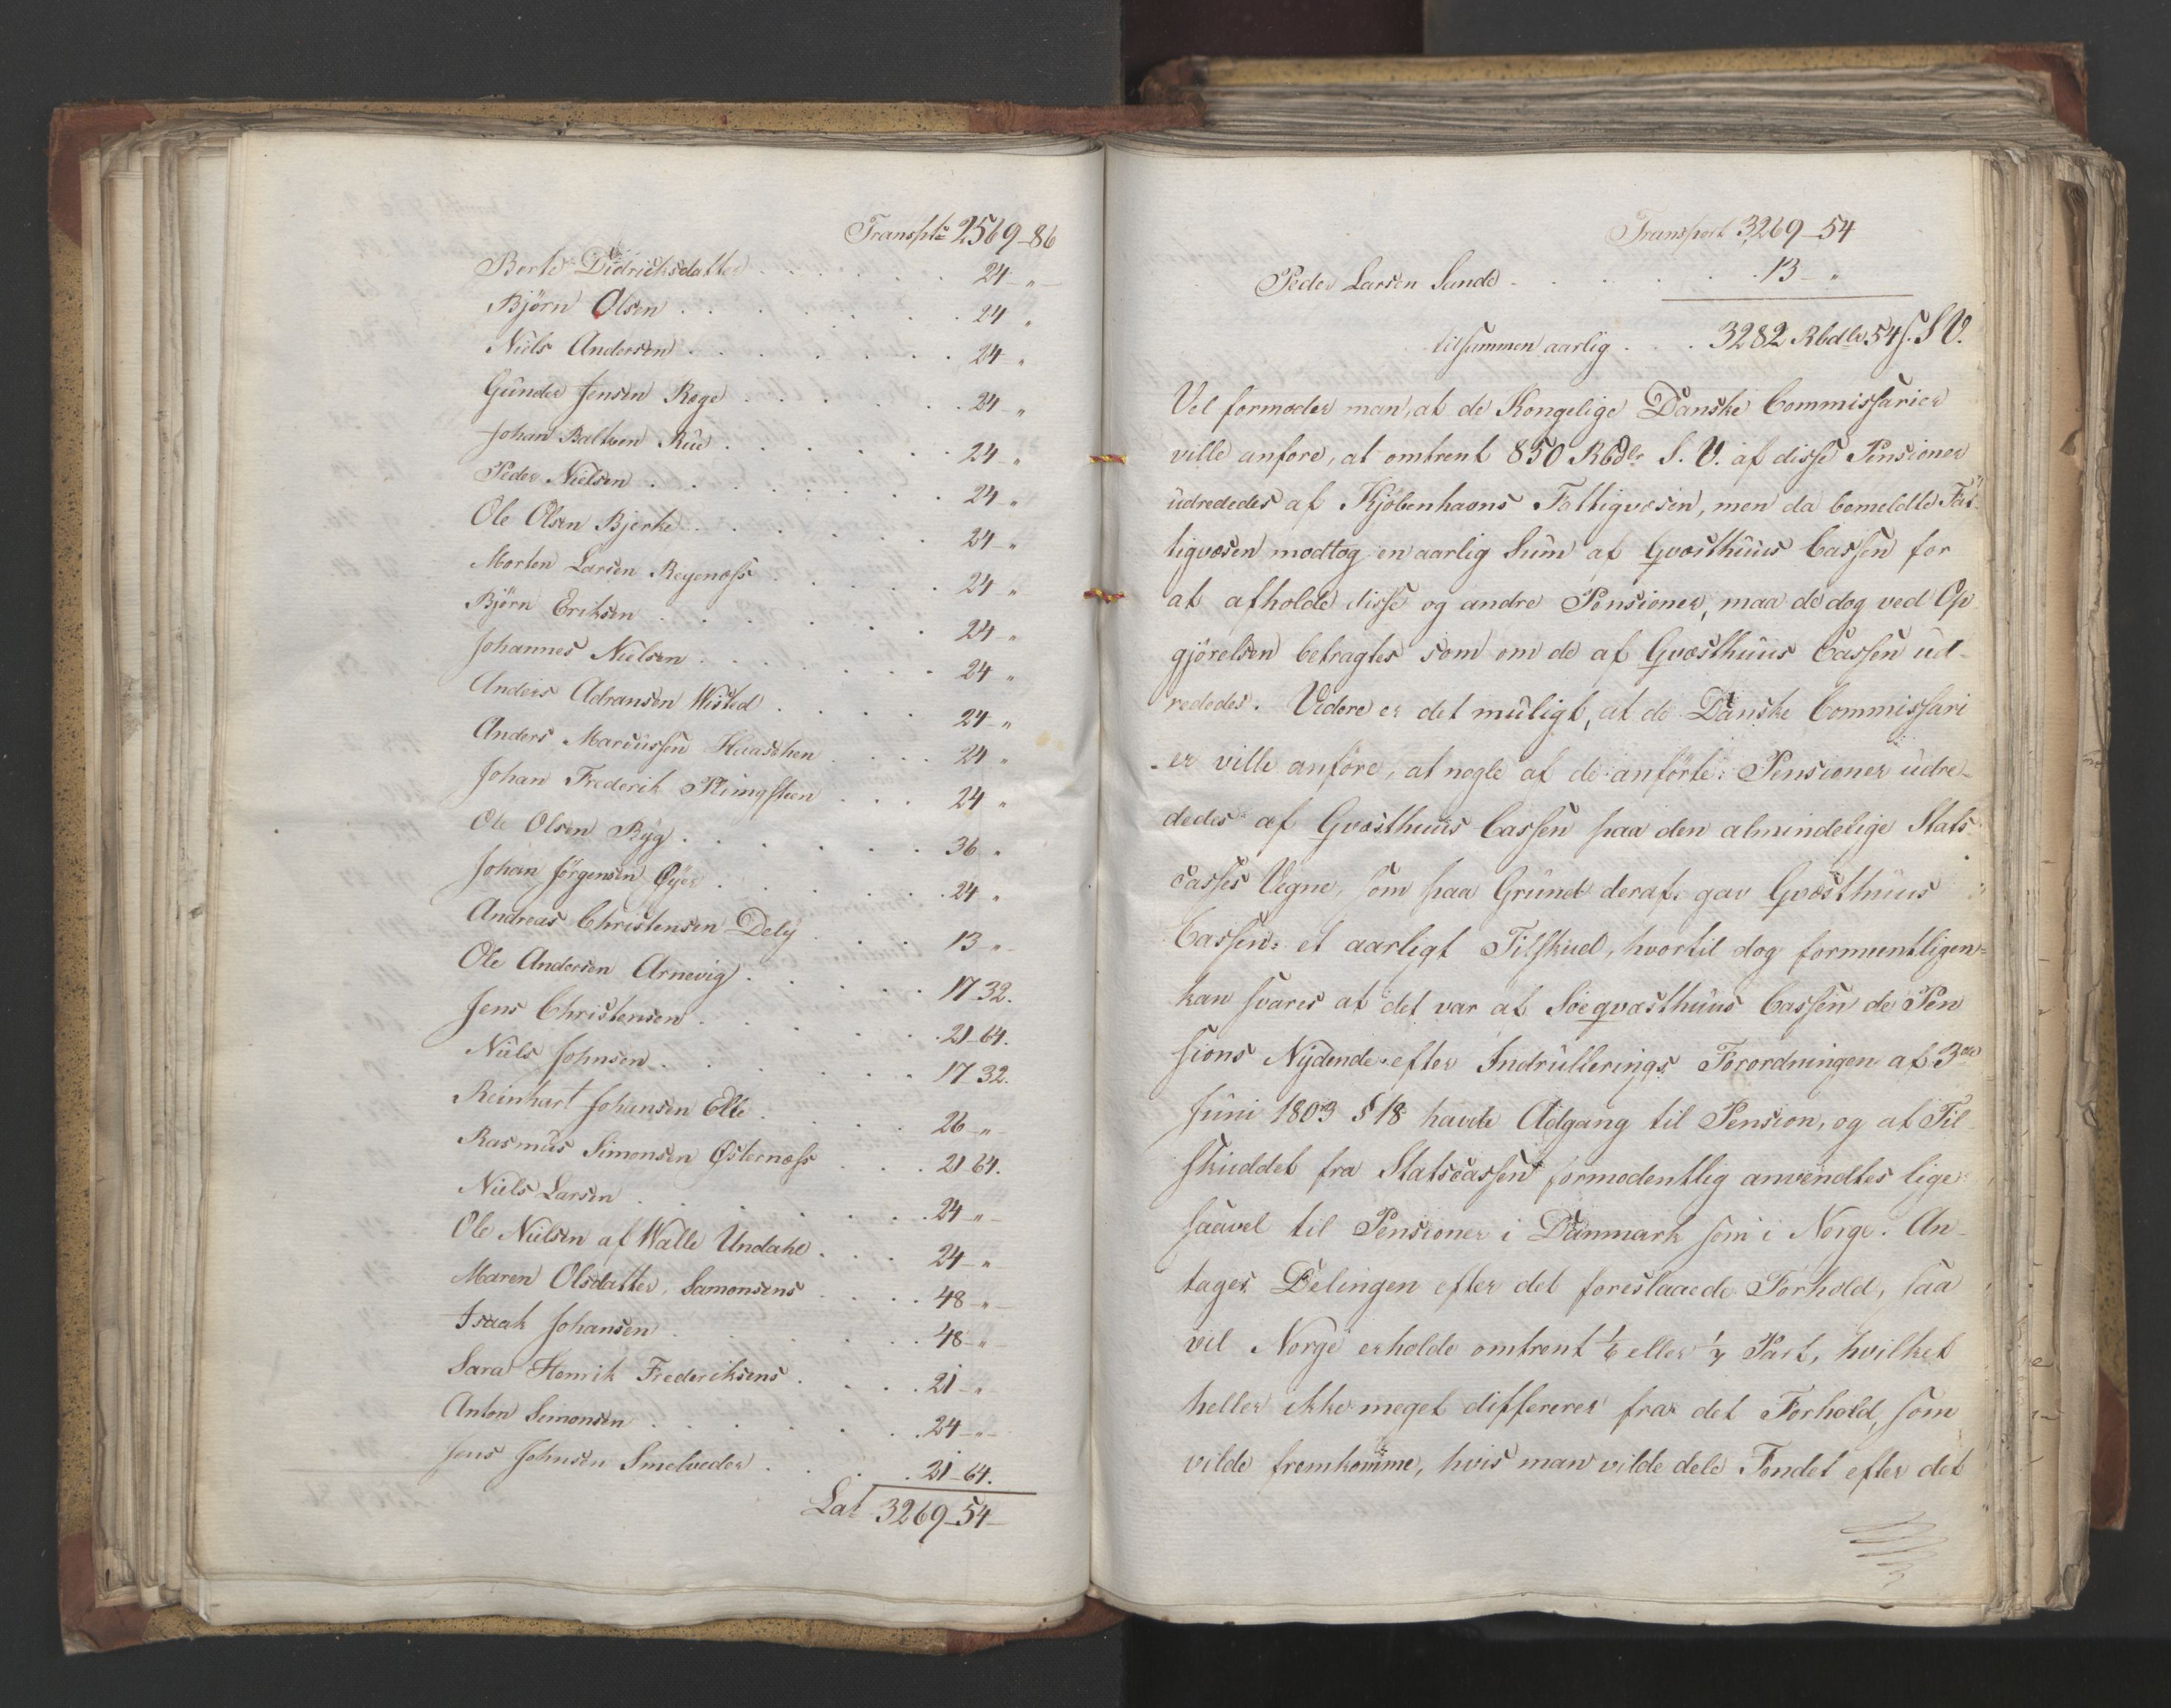 Transpt: 2569-86
Berte Didrichsdatter . . . . . 24 - "
Björn Olsen . . . . . . 24 "
Niels Andersen . . . . . . 24 "
Gunder Jensen Roge . . . . . 24 - "
Johan Baltsen Rue . . . . . 24 "
Peder Nielsen . . . . . . 24 "
Ole Olsen Bjerke . . . . . 24 - "
Morten Larsen Regenæss . . . . 24 "
Björn Eriksen . . . . . . 24 - "
Johannes Nielsen . . . . . 24 "
Anders Adransen Wisted . . . . 24 - "
Anders Marcussen Haaschen . . . . 24 "
Johan Frederik . . . 24 "
Ole Olsen Ryg . . . . . . 36 "
Johan Jørgensen Øyer . . . . . 24 "
Andreas Christensen Dely . . . 13 "
Ole Andersen Arnevig . . . . . 17 32.
Jens Christensen . . . . . 21-64.
Niels Johnsen . . . . . . 17 32.
Reinhart Johansen Elle . . . . 26 - "
Rasmus Simonsen Østernæss . . . 21-64.
Niels Larsen . . . . . . 24 - "
Ole Nielsen af Walle Undahl . . . 24 - "
Maren Olsdatter, Samonsens . . . . 48 - "
Isaak Johansen . . . . . . 48 - "
Sara Henrik Frederiksens . . . . 21 - "
Anton Simonsen . . . . . . 24 - "
Jens Johnsen Smelveder . . . . 21-64.
Lat 3269-54
Transport 3269-54
Peder Larsen Sunde . . . . . 13 - "
tilsammen aarlig . . . 3282 Rbdlr 54 s. S.V.
Vel formoder man, at de Kongelige Danske Commissarier
ville anføre, at omtrent 850 Rbdlr S. V. af disse Pensioner
udrededes af Kjöbenhavns Fattigvæsen, men da bemeldte Fat-
tigvæsen modtog en aarlig Sum af Qvæsthuus Cassen for
at afholde disse og andre Pensioner, maa de dog ved Op
gjörelsen betragtes som om de af Qvæsthuus Cassen ud-
rededes. Videre er det muligt, at de Danske Commissari
er ville anföre, at nogle af de anförte Pensioner udre-
dedes af Qvæsthuus Cassen paa den almindelige Stats
casses Vegne, som paa Grund deraf gav Qvæsthuus
Cassen et aarligt Tilskud, hvortil dog formeentligen
kan svares at det var af Söeqvæsthuus Cassen de Pen
sions Nydende efter Indrullerings Forordningen af 3die
Juni 1803 § 18 havde Adgang til Pension, og at Til
skuddet fra Statscassen formodentlig anvendtes lige
saavel til Pensioner i Danmark som i Norge. An-
tages Delingen efter det foreslaaede Forhold, saa
vil Norge erholde omtrent 1/6 eller 1/7 Part, hvilket
heller ikke meget differerer fra det Forhold, som
vilde fremkomme, hvis man vilde dele Fondet efter det